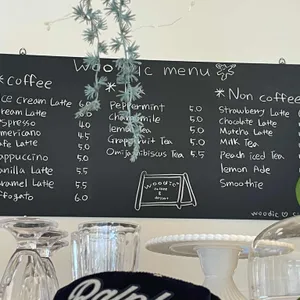 Woo ic menu
*coffee
ce cream Latte 6.0
ream Latte
spresso 4.0
mericano 4.5
afe Latte 5.0
appuccino 5.0
anilla Latte 5.5
aramel Latte 5.5
ffogato 6.0
*
Peppermint 5.0
Chamomile 5.0
lemon Tea 5.0
Grapefruit Tea 5.0
Omija hibiscus Tea 5.5
woodic
coffee
&
*Non coffee
Strawberry Latte
Chocolate Latte
Matcha Latte
Milk Tea
Peach iced Tea
lemon Ade
Smoothie
woodic ♡